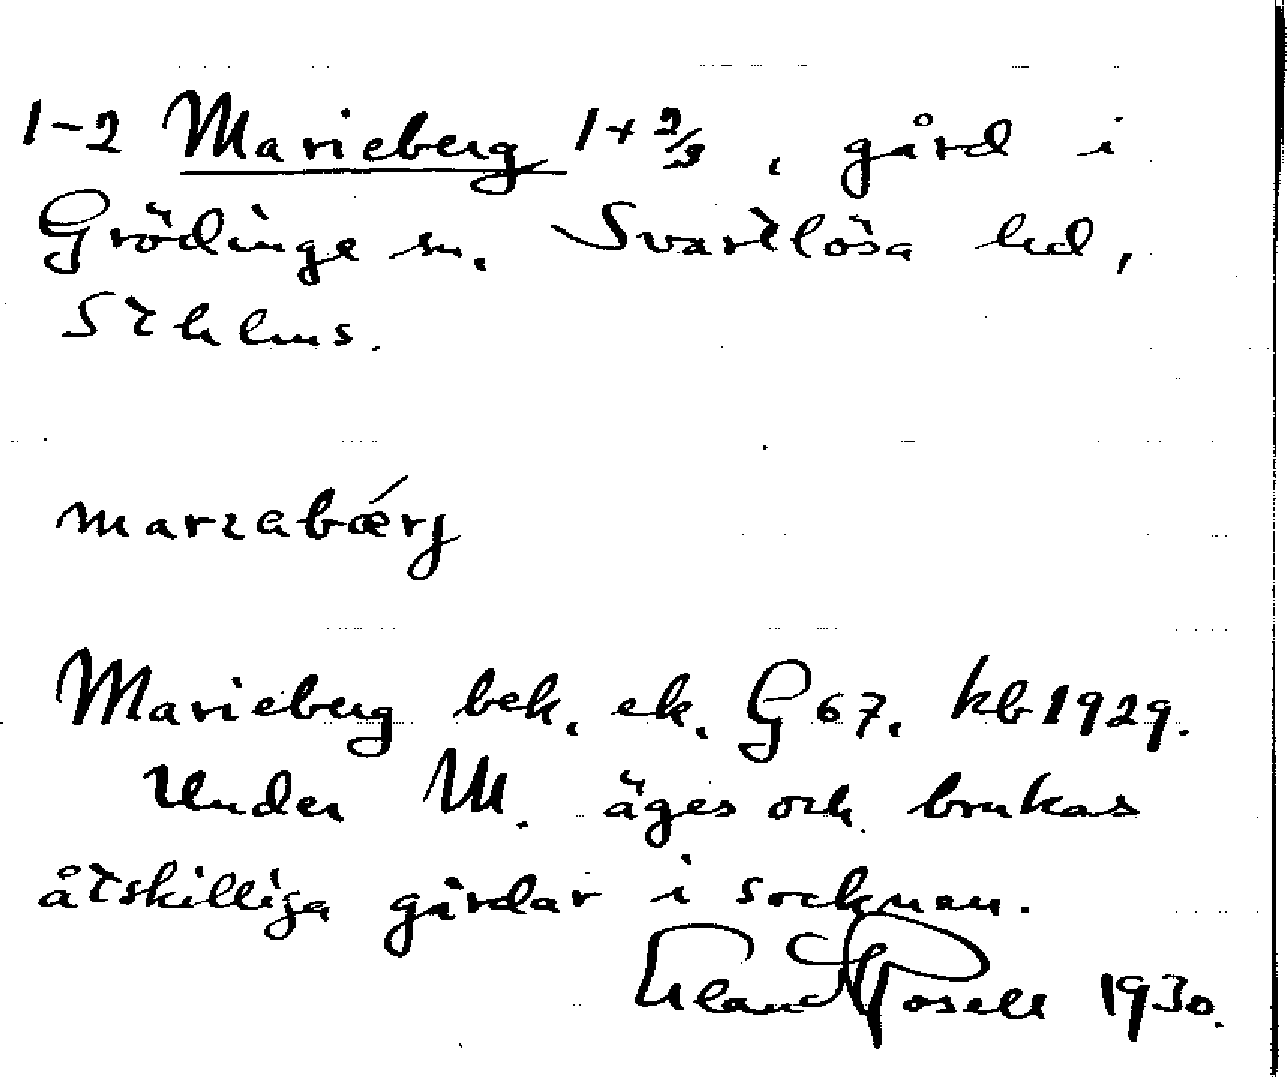 1-2 Marieberg 1+2/3, gård i
Grödinge sn. Svartlösa hd,
Sthlms.
marɩabǽrj
Marieberg bek. ek. G 67. kb 1929.
Under M. äges och brukas
åtskilliga gårdar i socknen.
Erland Rosell 1930.